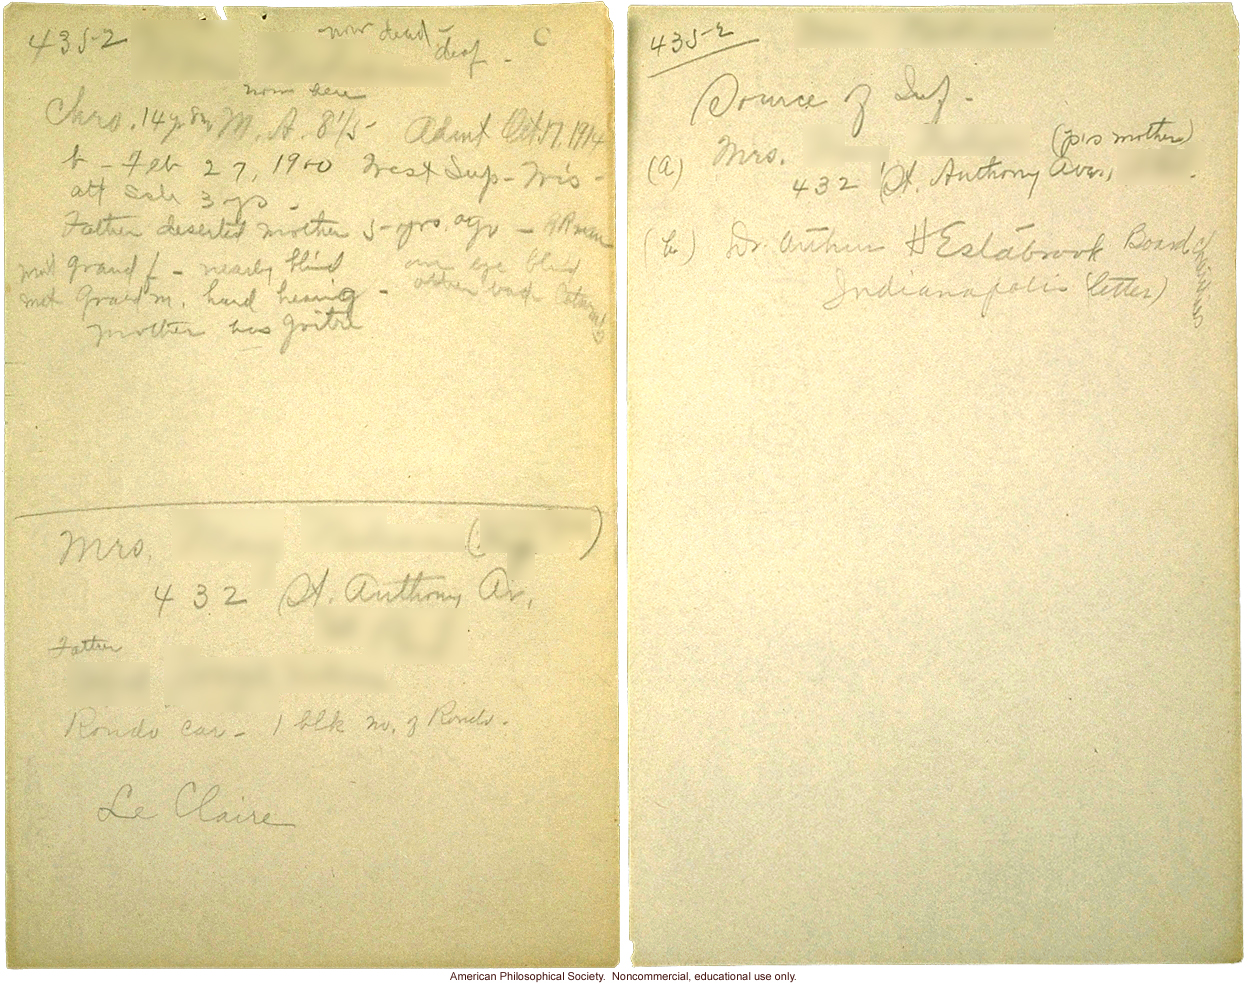 4352
now dead - deaf - C
now here
Chro. 14 yr 8 m M. A. 8 1/5 - Admit Oct 17, 1914
b - Feb 27, 1900 West Sup - Wis -
att Schl 3 yrs -
Father deserted mother 5 yrs. ago - RR man
mat grand f - nearly blind one eye blind
mat Grand m. hard hearing - other bad
mother has goitre
Mrs. ( )
432 St. Anthony Av,
Father
Rondo car - 1 blk no. of Rondo.
Le Claire
435-2
Source of Inf -
(a) Mrs. (p's mother)
432 St. Anthony Ave.,
(b) Dr. Arthur H Estabrook Board of Charities
Indianapolis (letter)
American Philosophical Society. Noncommercial, educational use only.